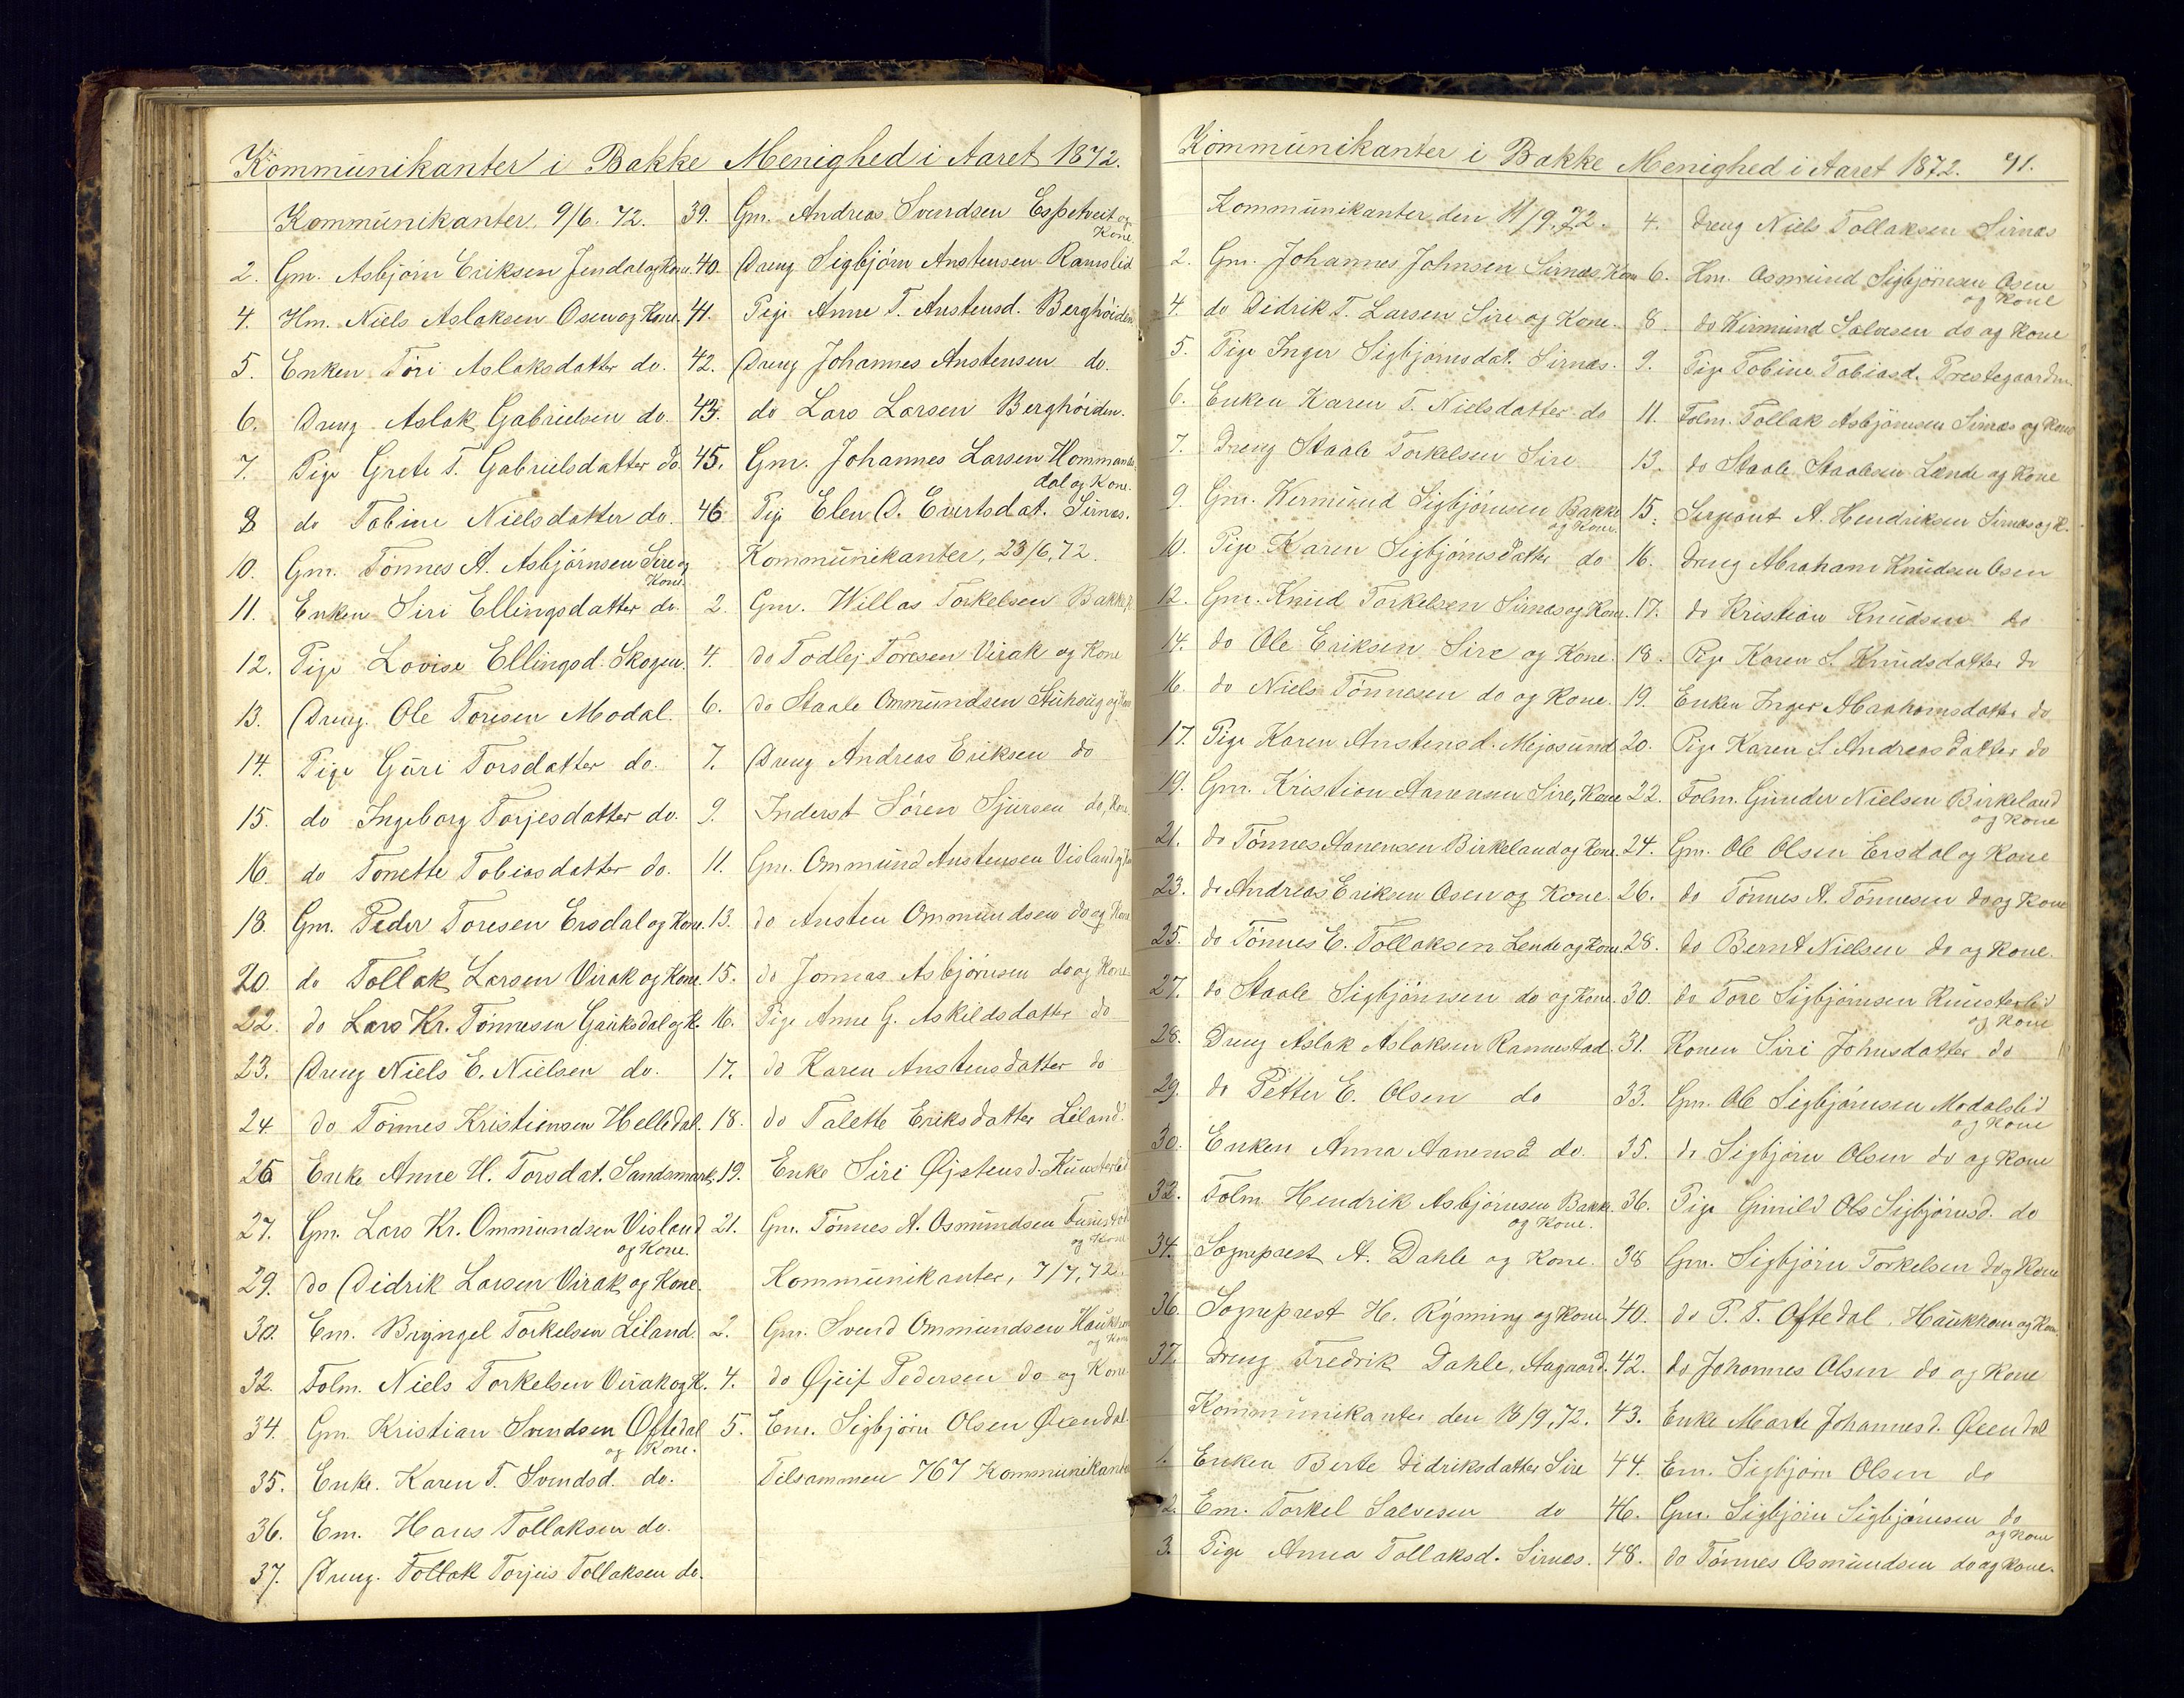 Kommunikanter i Bakke Menighed i Aaret 1872.
Kommunikanter 9/6. 72.
2. Gm. Asbjørn Eriksen Jendal og Kone.
4. Hm. Niels Aslaksen Osen og Kone.
5. Enken Tøri Aslaksdatter do.
6. Dreng Aslak Gabrielsen do.
7. Pige Grete T. Gabrielsdatter do
8 do Tobine Nielsdatter do.
10. Gm. Tønnes A. Asbjørnsen Sire og
Kone
11. Enken Siri Ellingsdatter do.
12. Pige Lovise Ellingsd. Skogen.
13. Dreng Ole Toresen Modal.
14. Pige Guri Torsdatter do.
15. do Ingeborg Torjesdatter do.
16. do Tonette Tobiasdatter do.
18. Gm. Peder Toresen Ersdal og Kone.
20. do Tollak Larsen Virak og Kone
22. do Lars Kr. Tønnesen Gauksdal og K.
23. Dreng Niels E. Nielsen do.
24. do Tønnes Kristiensen Helledal.
26 Enke Anne H. Torsdat. Sandsmark.
27. Gm. Lars Kr. Ommundsen Visland
og Kone.
29. do Didrik Larsen Virak og Kone.
30. Em. Bryngel Torkelsen Liland.
32. Folm. Niels Torkelsen Virak og K.
34. Gm. Kristian Svendsen Oftedal
og Kone.
35. Enke. Karen T. Svendsd. do.
36. Em. Hans Tollaksen do.
37. Dreng. Tollak Torjeis Tollaksen do.
39. Gm. Andreas Svendsen Espetveit og
Kone.
40. Dreng Sigbjørn Anstensen Ramslid
41. Pige Anne T. Anstensd. Berghøiden
42. Dreng Johannes Anstensen do.
43. do Lars Larsen Berghøiden.
45. Gm. Johannes Larsen Homman
dal og Kone.
46 Pige Elen D. Evertsdat. Sirnes.
Kommunikanter, 23/6, 72.
2. Gm. Willas Torkelsen Bakke
4. do Todlej Toresen Virak og Kone
6. do Staale Ommundsen Stuhaug og
7. Dreng Andreas Eriksen do
9. Inderst Søren Sjursen do, Kone
11. Gm. Ommund Anstensen Visland og
13. do Ansten Ommundsen do og Kone
15. do Jonnas Asbjørnsen do og Kone
16. Pige Anne G. Askildsdatter do
17. do Karen Anstensdatter do
18. do Talette Eriksdatter Liland.
19. Enke Siri Øjstensd. Kunsterlid
21. Gm. Tønnes A. Osmundsen
og Kone
Kommunikanter, 7/7, 72.
2. Gm. Svend Ommundsen Haukom
og Kone
4. do Øjeif Pedersen do og Kone
5. Em. Sigbjørn Olsen Øxendal.
Tilsammen 767 Kommunikanter
Kommunikanter i Bakke Menighed i Aaret 1872. 71.
Kommunikanter den 11/9, 72.
2. Gm. Johannes Johnsen Sirnæs Kone
4. do Didrik T. Larsen Sire og Kone.
5. Pige Inger Sigbjørnsdat. Sirnæs.
6. Enken Karen T. Nielsdatter do
7. Dreng Staale Torkelsen Sire
9. Gm. Wermund Sigbjørnsen Bakke
og Kone.
10. Pige Karen Sigbjørnsdatter do
12. Gm. Knud Torkelsen Sirnæs og Kone.
14. do Ole Eriksen Sire og Kone.
16. do Niels Tønnesen do og Kone.
17. Pige Karen Anstensd. Mejosund
19. Gm. Kristian Aanensen Sire, Kone
21. do Tønnes Aanensen Birkeland og Kone.
23. do Andreas Eriksen Osen og Kone.
25. do Tønnes E. Tollaksen Lende og Kone.
27. do Staale Sigbjørnsen do og Kone.
28. Dreng Aslak Aslaksen Rannestad.
29. do Petter E. Olsen do
30. Enken Anna Aanensd do.
32. Folm Hendrik Asbjørnsen Bakke.
og Kone.
34. Sogneprest A. Dahle og Kone.
36. Sogneprest H. Rynning og Kone.
37. Dreng Fredrik Dahle, Aagaard.
Kommunikanter den 18/9, 72.
1. Enken Berte Didriksdatter Sire
2. Em. Torkel Salvesen do
3. Pige Anna Tollaksd. Sirnes.
4. Dreng Niels Tollaksen Sirnæs
6. Hm. Osmund Sigbjørnsen Osen
og Kone
8. do Virmund Salvesen do og Kone
9. Pige Tobine Tobiasd. Prestegaarden.
11. Folm. Tollak Asbjørnsen Sirnæs og Kone
13. do Staale Staalesen Lende og Kone
15. Serjant A. Hendriksen Sirnæs og K.
16. Dreng Abraham Knudsen Osen
17. do Kristian Knudsen do
18. Pige Karen S. Knudsdatter do
19. Enken Inger Abrahamsdatter do
20. Pige Karen S. Andreasdatter do
22. Folm. Gunder Nielsen Birkeland
og Kone
24. Gm. Ole Olsen Ersdal og Kone
26. do Tønnes A. Tønnesen do og Kone
28. do Bernt Nielsen do og Kone.
30. do Tore Sigbjørnsen Kunsterlid
og Kone
31. Konen Siri Johnsdatter do
33. Gm. Ole Sigbjørnsen Modalslid
og Kone
35. do Sigbjørn Olsen do og Kone
36. Pige Gunild Ols Sigbjørnsd. do
38 Gm. Sigbjørn Torkelsen do og Kone
40. do P. T. Oftedal, Haukkom og Kone.
42. do Johannes Olsen do og Kone
43. Enke Marte Johannesd. Øxendal
44. Em. Sigbjørn Olsen do
46. Gm. Sigbjørn Sigbjørnsen do
og Kone
48. do Tønnes Osmundsen do og Kone.